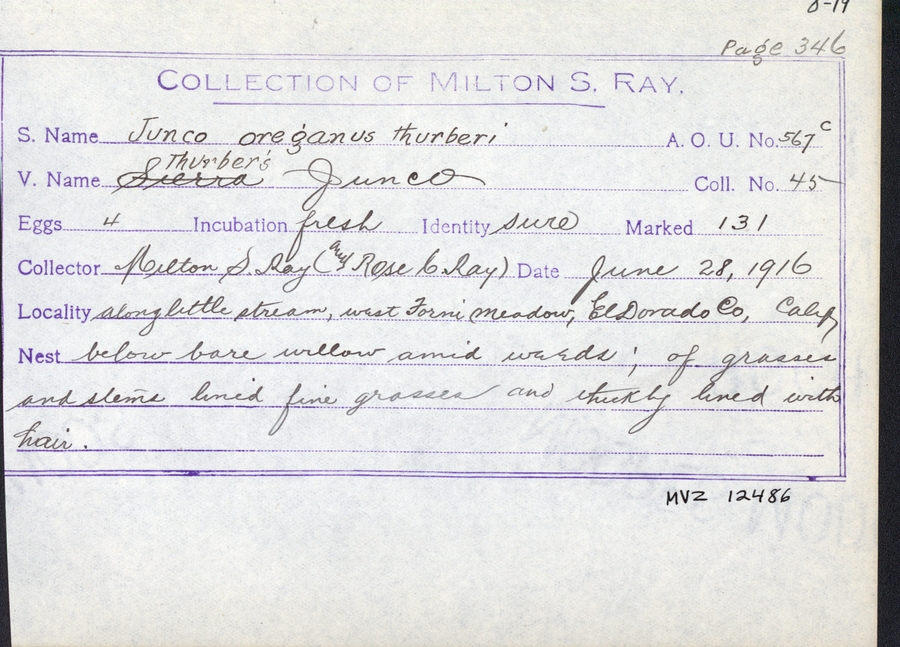 8-19
Page 346
COLLECTION OF MILTON S. RAY.
S. Name Junco oreganus thurberi A. O. U. No. 567c
Thurber's
V. Name Sierra Junco Coll. No. 45
Eggs 4 Incubation fresh Identity sure Marked 131
Collector Milton S. Ray (and Rose C. Ray) Date June 28, 1916
Locality along little stream, west Forni meadow, El Dorado Co, Calif
Nest below bare willow amid weeds; of grasses
and stems lined fine grasses and thickly lined with
hair.
MVZ 12486